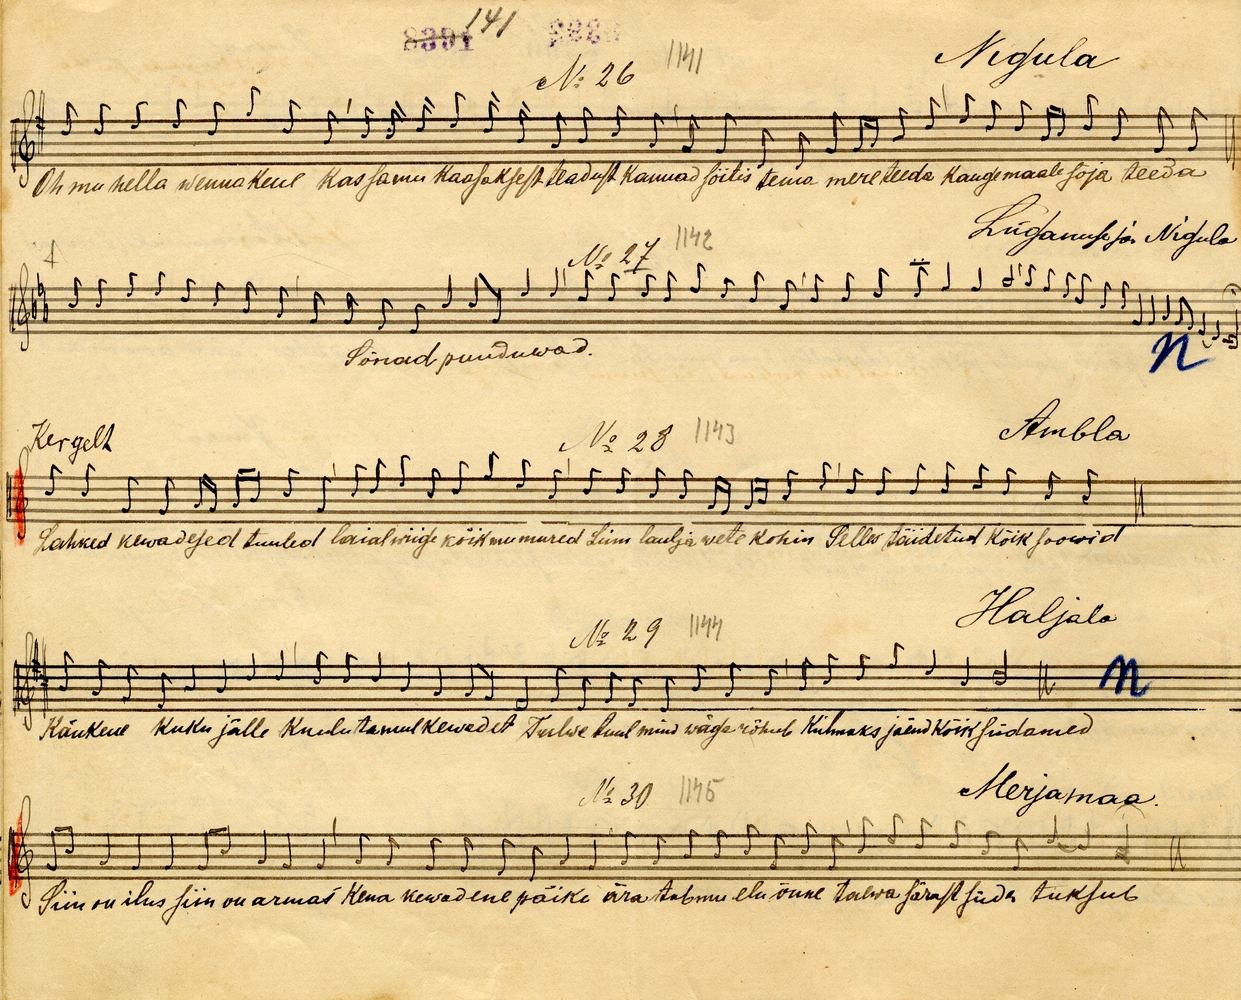 141
8391
№ 26 1141 Nigula
Oh mu hella wennakene kas sa mu kaasaksest teadust kannad sõitis tema mere teeda kauge maale sõja teeda
Lüganuse ja Nigula
№ 27 1142
Sõnad puuduwad.
n
Kergelt № 28 1143 Ambla
Lahked kewadesed tuuled laial wiige kõik mu mured Liim laulja wete kohin Selles täidetud kõik soowid
№ 29 1144 Haljala
n
Käukene kuku jälle Kuulutamul kewadet Talwe tuul mind wäga rõhub Külmaks jäend kõik südamed
№ 30 1145 Merjamaa.
Siin on ilus siin on armas Kena kewadene päike ära tab mu elu õnne talwa särast süda tuksub